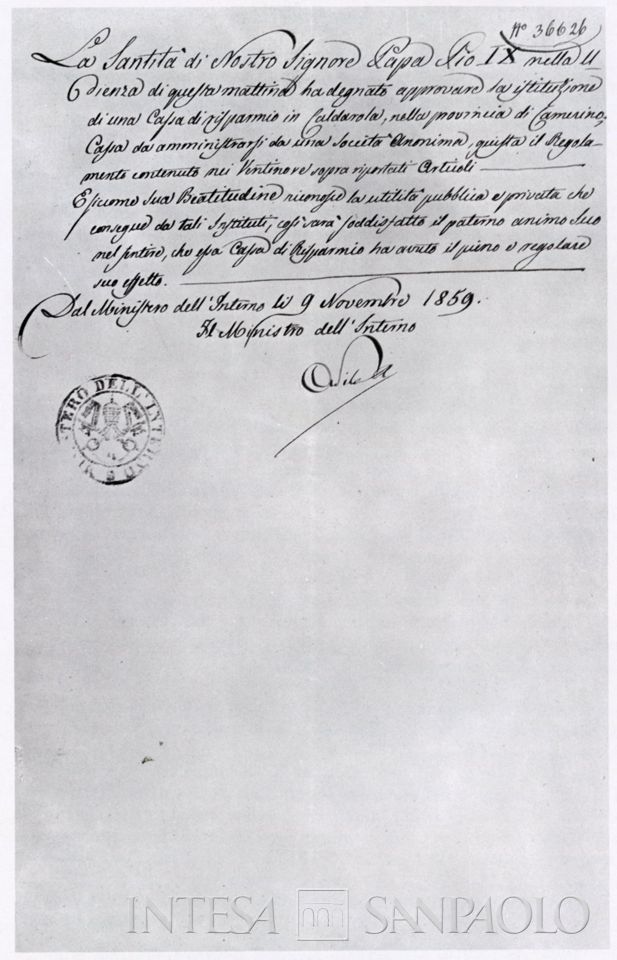 N° 36626
La Santità di Nostro Signore Papa Pio IX nella U
dienza di questa mattina ha degnato approvare la istituzione
di una Cassa di risparmio in Caldarola, nella provincia di Camerino,
Cassa da amministrarsi da una Società Anonima, giusta il Regola-
mento contenuto nei Ventinove sopra riportati Articoli
E siccome Sua Beatitudine riconosce la utilità pubblica e privata che
consegue da tali Instituti, così sarà soddisfatto il paterno animo Suo
nel sentire, che essa Cassa di Risparmio ha avuto il pieno e regolare
suo effetto.
Dal Ministero dell'Interno li 9 Novembre 1859.
Il Ministro dell'Interno
MINISTERO DELL'INTERNO
INTESA SANPAOLO